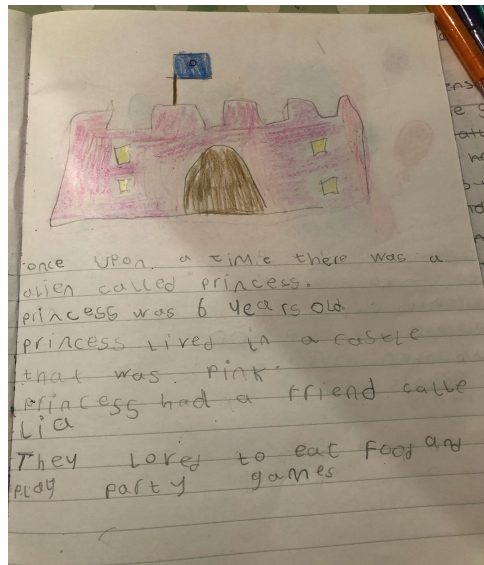 once upon a time there was a
alien called princess.
princess was 6 years old.
princess lived in a castle
that was pink.
Princess had a friend calle
Lia
They loved to eat Food and
play party games